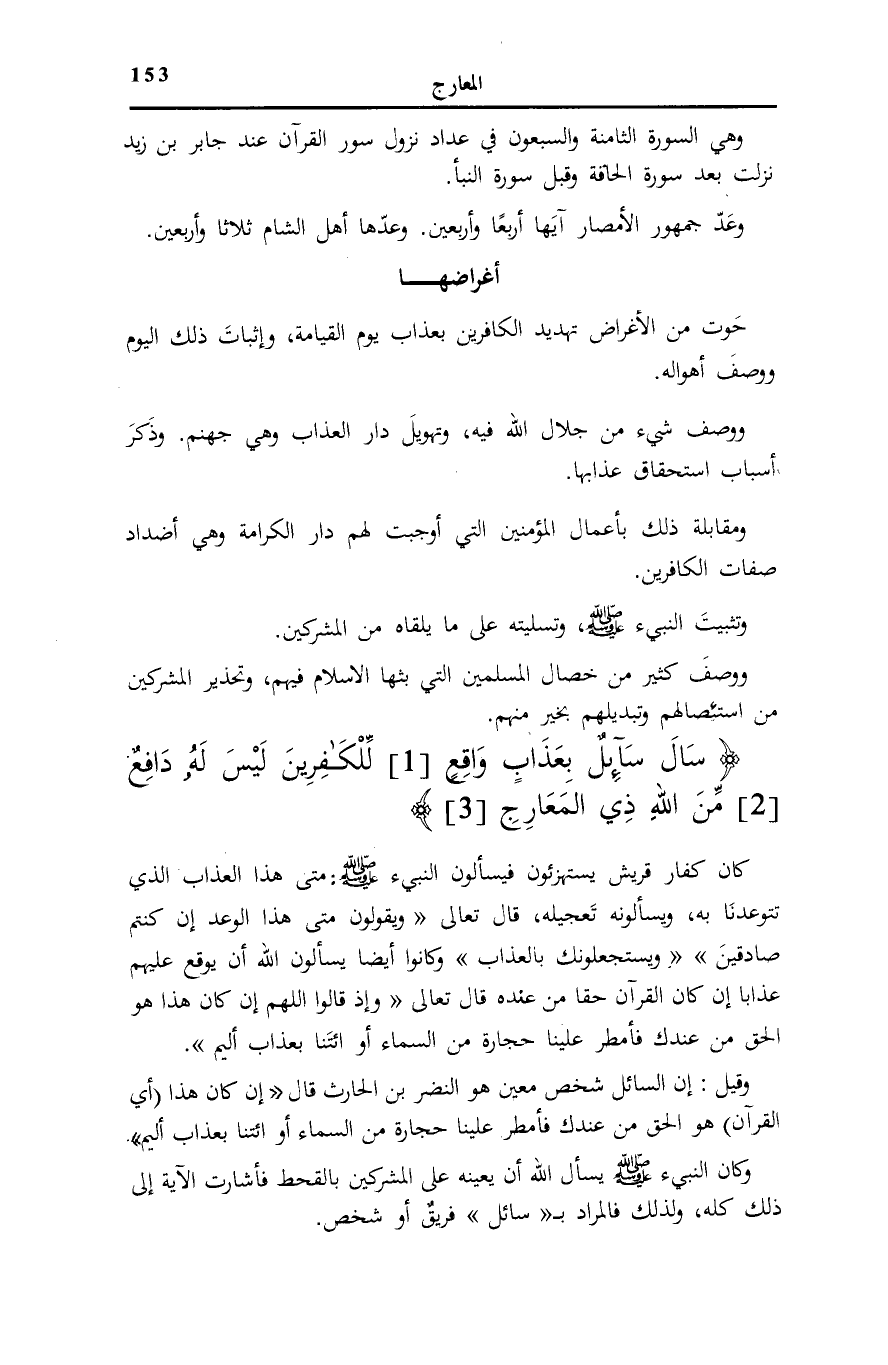 153
المعارج
وهي السورة الثامنة والسبعون في عداد نزول سور القرآن عند جابر بن زيد
نزلت بعد سورة الحاقة وقبل سورة النبأ.
وعَدّ جمهور الأمصار آيَها أربعًا وأربعين. وعدّها أهل الشام ثلاثا وأربعين.
أغراضهـــا
حَوت من الأغراض تهديد الكافرين بعذاب يوم القيامة، وإثباتَ ذلك اليوم
ووصفَ أهواله.
ووصف شيء من جلال الله فيه، وتهويلَ دار العذاب وهي جهنم. وذَكرَ
أسباب استحقاق عذابها.
ومقابلة ذلك بأعمال المؤمنين التي أوجبت لهم دار الكرامة وهي أضداد
صفات الكافرين.
وتثبيتَ النبيء ﷺ، وتسليته على ما يلقاه من المشركين.
ووصفَ كثير من خصال المسلمين التي بثها الاسلام فيهم، وتحذير المشركين
من استئصالهم وتبديلهم بخير منهم.
﴿ سَالَ سَآئِلٌ بِعَذَابٍ وَاقِعٍ [1] لِّلْكَـٰفِرِينَ لَيْسَ لَهُۥ دَافِعٌ
[2] مِّنَ اللهِ ذِي المَعَارِجِ [3] ﴾
كان كفار قريش يستهزئون فيسألون النبيء ﷺ: متى هذا العذاب الذي
تتوعدنَا به، ويسألونه تَعجيله، قال تعالى « ويقولون متى هذا الوعد إن كنتم
صادقينَ » « ويستجعلونك بالعذاب » وكانوا أيضا يسألون الله أن يوقع عليهم
عذابا إن كان القرآن حقا من عنده قال تعالى « وإذ قالوا اللهم إن كان هذا هو
الحق من عندك فأمطر علينا حجارة من السماء أو ائتَنا بعذاب أليم ».
وقيل : إن السائل شخص معين هو النضر بن الحارث قال « إن كان هذا (أي
القرآن) هو الحق من عندك فأمطر علينا حجارة من السماء أو ائتنا بعذاب أليم».
وكان النبيء ﷺ يسأل الله أن يعينه على المشركين بالقحط فأشارت الآية إلى
ذلك كله، ولذلك فالمراد بـ« سائل » فريقٌ أو شخص.